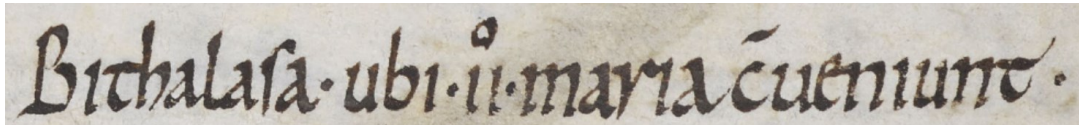 Bithalasa · ubi · iͦi · maria c̄ueniunt ·